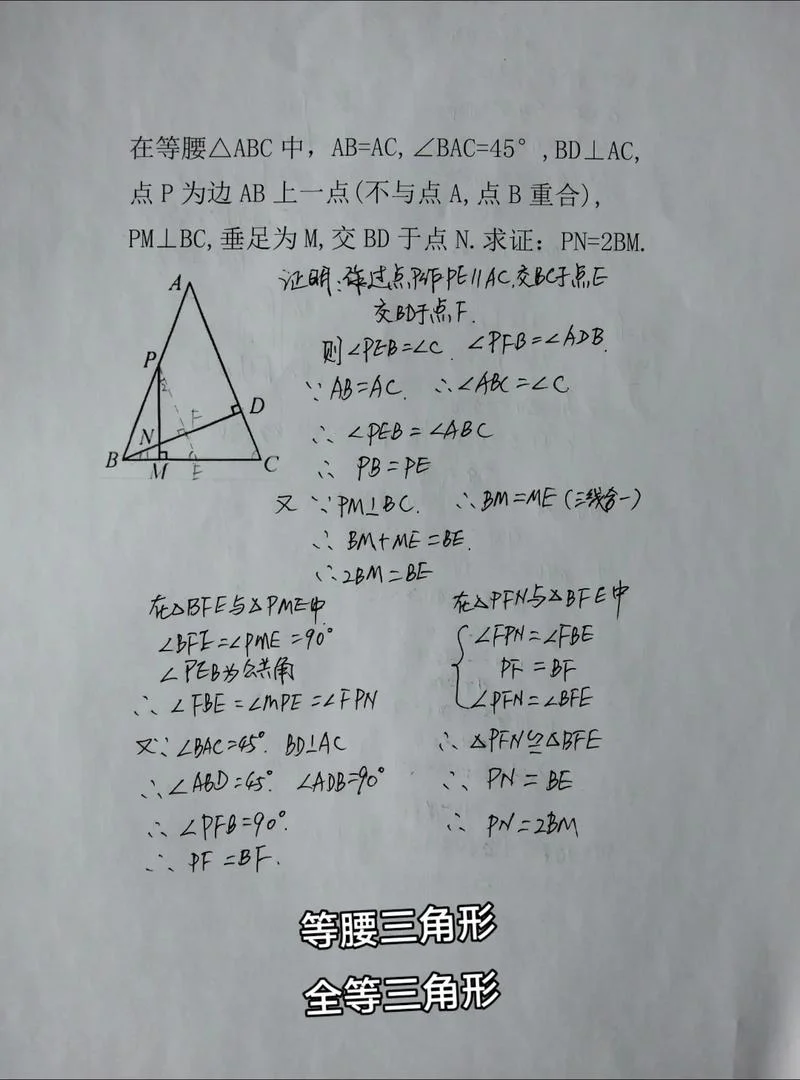 在等腰△ABC 中，AB=AC,∠BAC=45°,BD⊥AC,
点 P 为边 AB 上一点(不与点 A,点 B 重合),
PM⊥BC,垂足为 M,交 BD 于点 N.求证：PN=2BM.
证明:过点P作PE∥AC,交BC于点E
交BD于点F.
则∠PEB=∠C. ∠PFB=∠ADB.
∵AB=AC. ∴∠ABC=∠C
∴ ∠PEB=∠ABC
∴ PB=PE
又∵PM⊥BC. ∴BM=ME(三线合一)
∴ BM+ME=BE.
∴2BM=BE
A
P
D
F
N
B
M
E
C
在△BFE与△PME中
∠BFE=∠PME=90°
∠PEB为公共角
∴∠FBE=∠MPE=∠FPN
又∵∠BAC=45°. BD⊥AC
∴∠ABD=45°. ∠ADB=90°
∴∠PFB=90°.
∴ PF=BF.
在△PFN与△BFE中
∠FPN=∠FBE
PF=BF
∠PFN=∠BFE
∴ △PFN≌△BFE
∴ PN=BE
∴ PN=2BM
等腰三角形
全等三角形